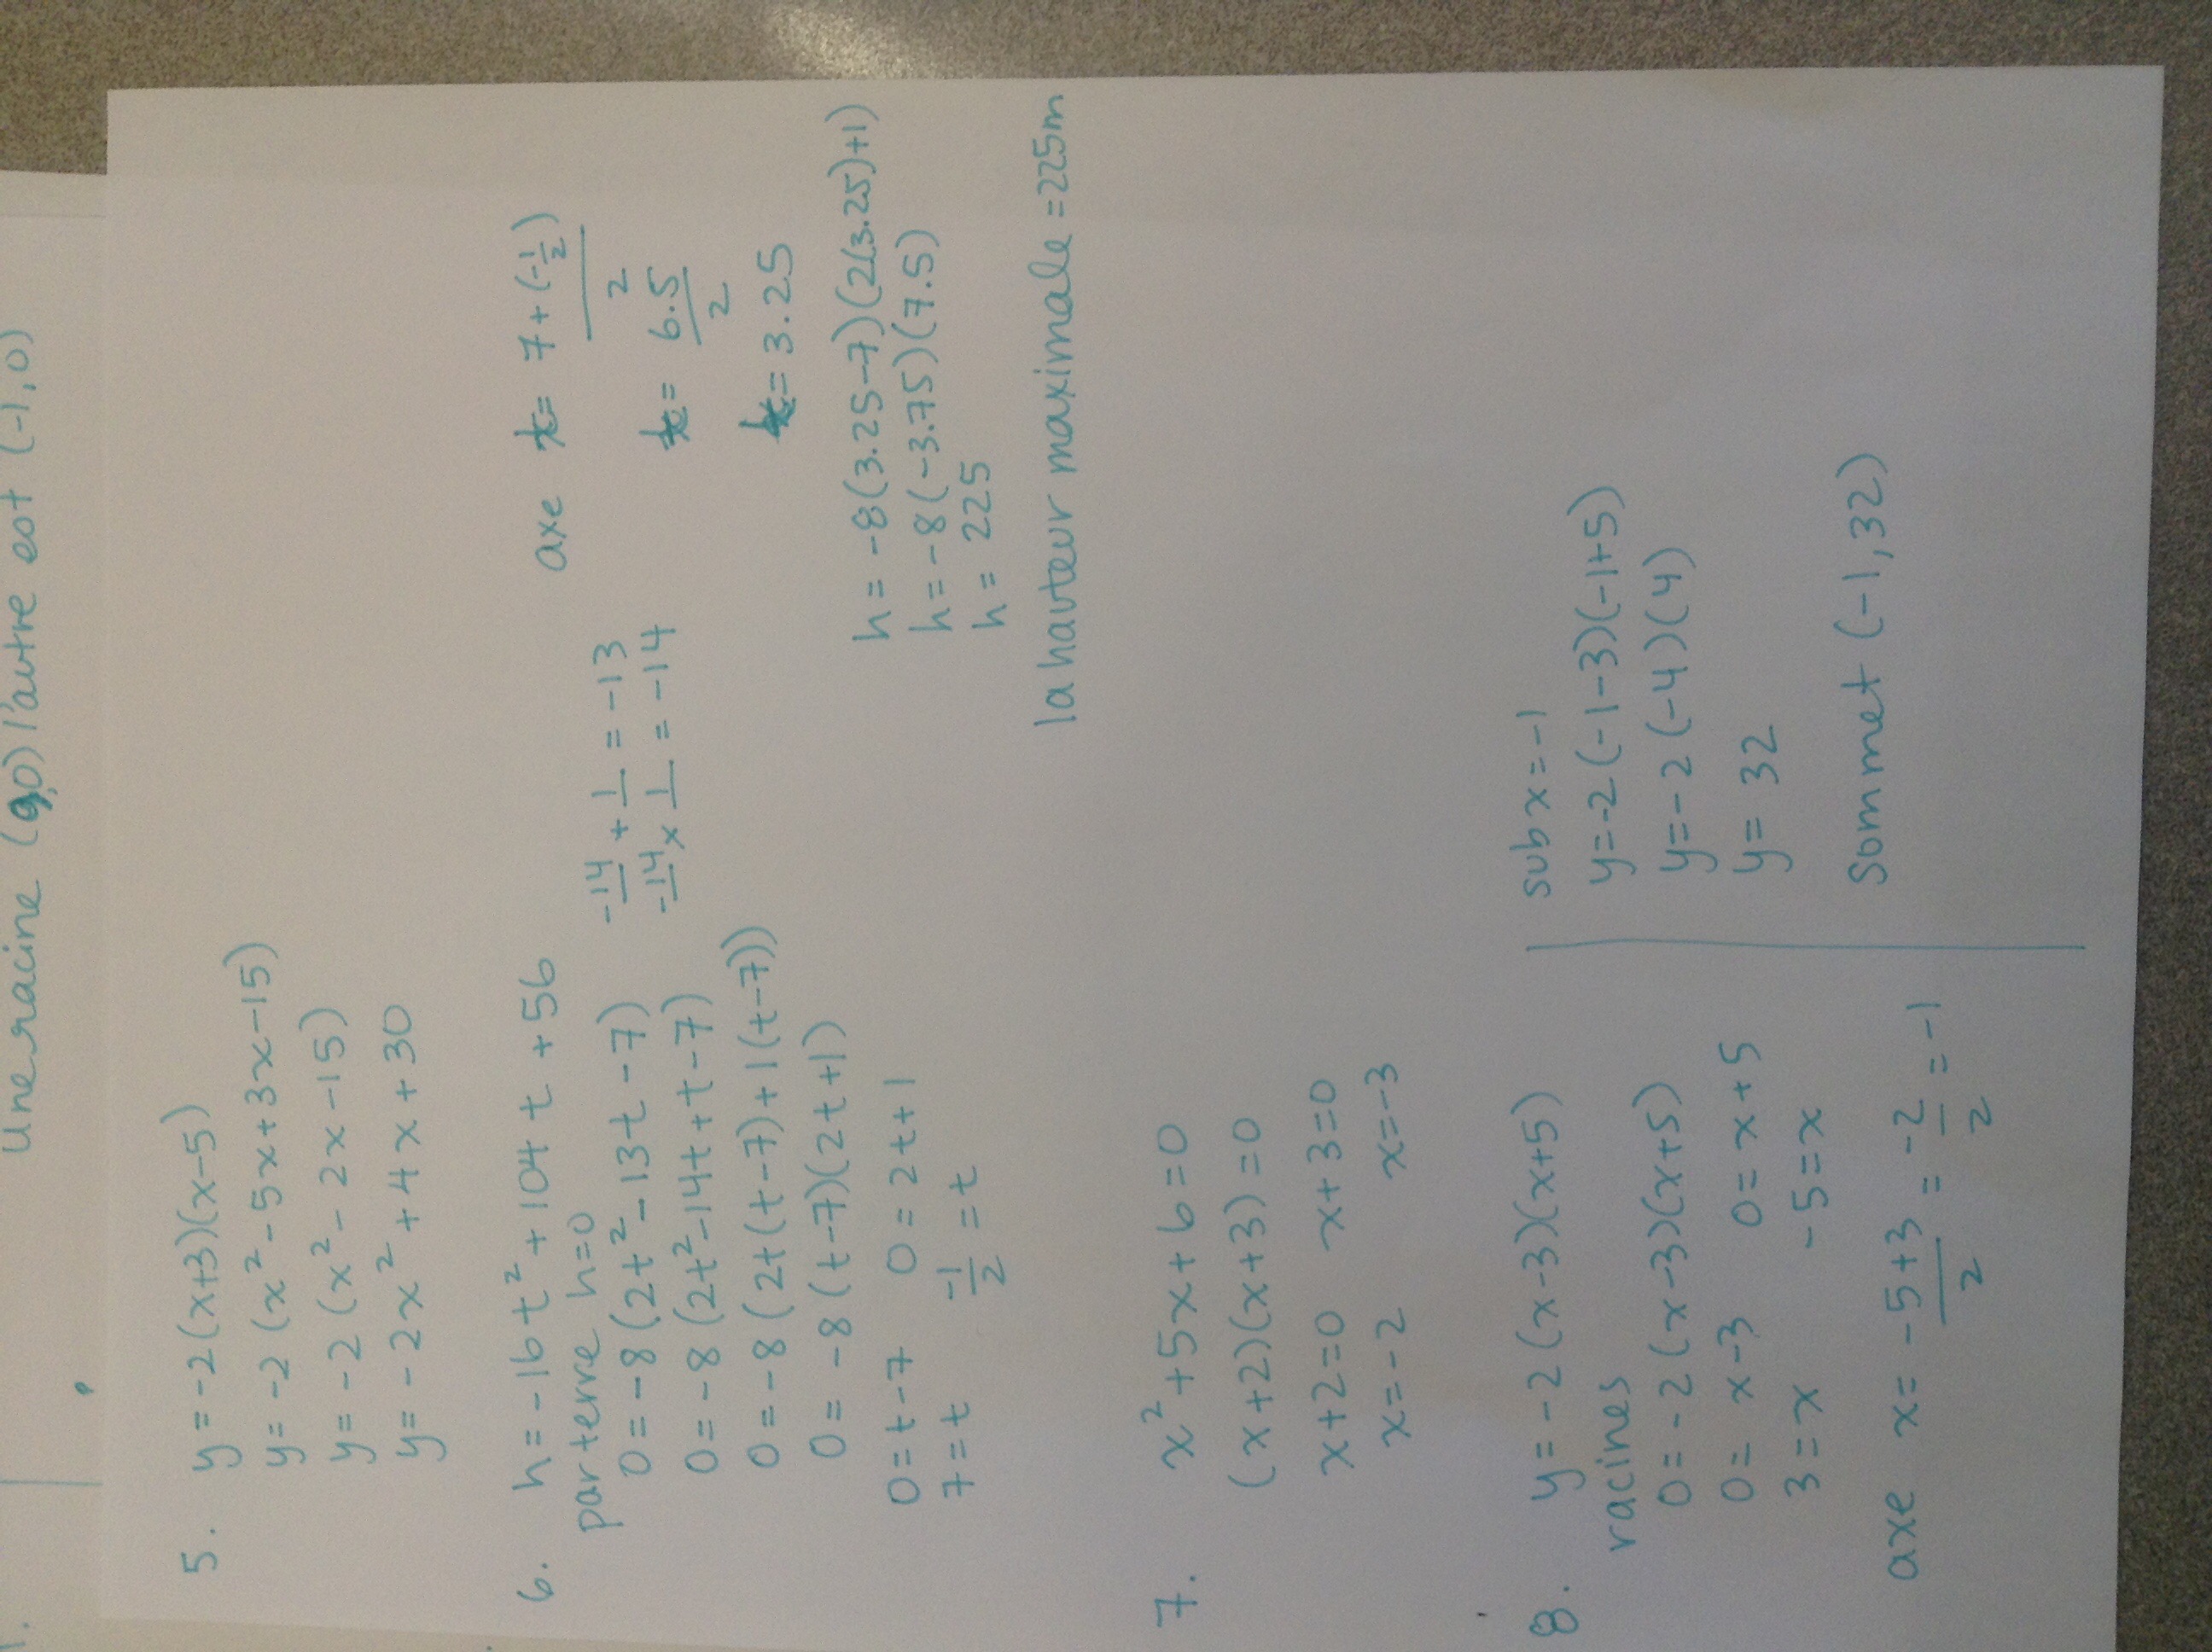 une racine (9,0) l'autre est (-1,0)
5. y = -2(x+3)(x-5)
y = -2(x² - 5x + 3x - 15)
y = -2(x² - 2x - 15)
y = -2x² + 4x + 30
6. h = -16t² + 104t + 56
par terre h=0
0 = -8(2t² - 13t - 7)
0 = -8(2t² - 14t + t - 7)
0 = -8(2t(t-7) + 1(t-7))
0 = -8(t-7)(2t+1)
0 = t - 7 0 = 2t + 1
7 = t -1/2 = t
-14 + 1 = -13
-14 x 1 = -14
axe t = 7 + (-1/2) / 2
t = 6.5 / 2
t = 3.25
h = -8(3.25-7)(2(3.25)+1)
h = -8(-3.75)(7.5)
h = 225
la hauteur maximale = 225m
7. x² + 5x + 6 = 0
(x+2)(x+3) = 0
x+2=0 x+3=0
x=-2 x=-3
8. y = -2(x-3)(x+5)
racines
0 = -2(x-3)(x+5)
0 = x-3 0 = x+5
3 = x -5 = x
axe x = -5+3 / 2 = -2/2 = -1
sub x = -1
y = -2(-1-3)(-1+5)
y = -2(-4)(4)
y = 32
sommet (-1, 32)